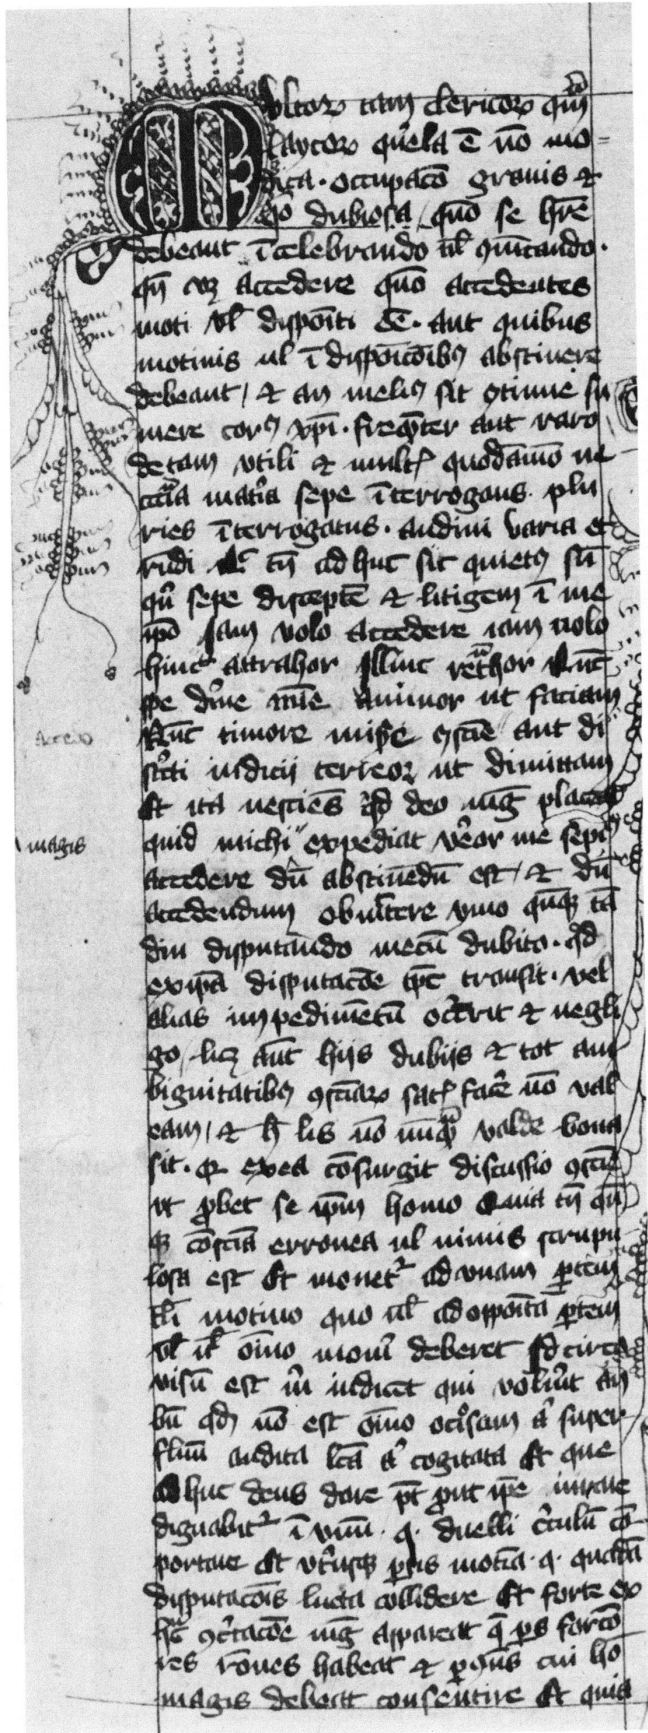 Multorꝫ tam clericorꝫ qͣm
laycorꝫ querela ē nō mo=
dica · occupacō gravis et
qō dubiosa / quō se hr̄e
debeant ī celebrando ul̄ 9m̄icando ·
qn̄ vꝫ accedere quō accedentes
moti vl̄ dispōiti eē · aut quibus
motivis ul̄ ī dispōicōibꝫ abstinere
debeant / et an meliꝰ sit 9tinue su
mere corꝰ xp̄i · freqn̄ter aut raro
de tam vtili et mult̄ quodāmō ne
cc̄ia mat̄ia sepe īterrogans · plu
ries īterrogatus · audivi varia et
rn̄di tn̄ ad huc sit quietꝰ su̅
qn̄ sepe discepte̅ et litigem ī me
ip̄o Jam volo accedere iam nolo
hinc attrahor Illinc ret̄hor Nu̅c
spe di̅ne mi̅e animor ut faciam
Nu̅c timore mīe 9scīe aut di
stͥcti iudicij terreor ut dimittam
Et ita nesciēs qͥd deo mag̅ placeat
magis
quid michi expediat vereor me sepiꝰ
accedere du̅ abstinēdu̅ est / et du̅
accedendum obmittere ymo qn̅qꝫ ta̅
diu disputando mecu̅ dubito · qd̅
ex ip̄a disputacōe tp̄c transit · vel
alias impedime̅tu̅ occ̅rit et negli
go / licꝫ au̅t hijs dubijs et tot am
biguitatibꝫ 9sciarꝫ satꝭ fac̅e nō val
eam / et h̅ lis nō nu̅qͣ valde bona
sit · qꝛ ex ea cōsurgit discussio 9scīe
vt ꝓbet se ip̄m homo Quia tn̄ qn̄
qꝫ cōscīa erronea ul̄ nimis scrupu
losa est Et monet̄ ad vnam ꝑtem
motivo quo ul̄ ad oppōita̅ ꝑtem
vl̄ oīno moveri deberet Id circa
visu̅ est m̄ iudicet qui volu̅it an
bn̄ qd̅ nō est oīno ociosam a̅ super
fluu̅ audita lc̅a a̅ cogitata Et que
ad huc deus dare pt̅ ꝓut ip̄e iurare
dignabit̄ ī vnu̅ · q̅ · duelli cͥculu̅ cō
portare Et vtͥusqꝫ ꝑtis motiva · q̅ · quadā
disputacōis lucta collidere Et forte ex
hͣc 9c̅tacōe mag̅ appareat q̅ ꝑs forcō
res rōnes habeat et cui ho
magis debeat consentire Et quia